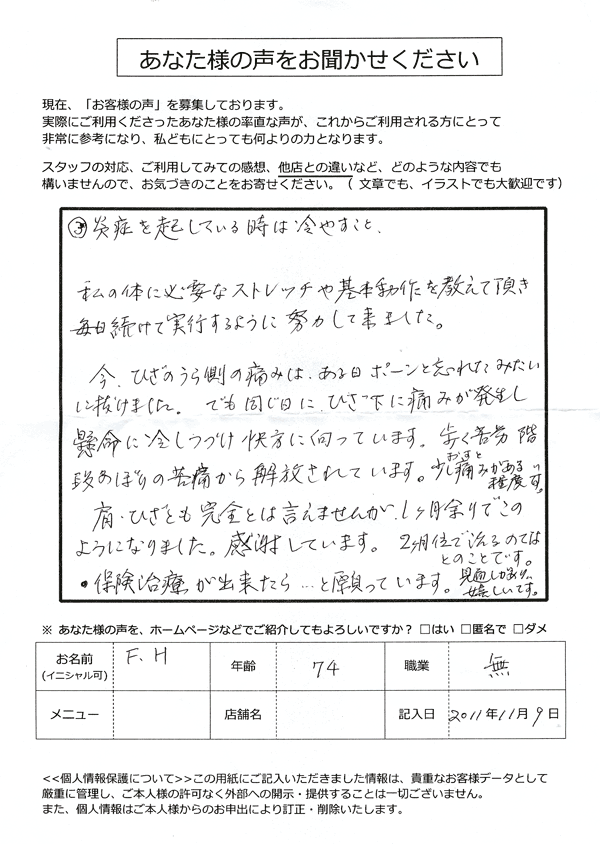 あなた様の声をお聞かせください
現在、「お客様の声」を募集しております。
実際にご利用くださったあなた様の率直な声が、これからご利用される方にとって
非常に参考になり、私どもにとっても何よりの力となります。
スタッフの対応、ご利用してみての感想、他店との違いなど、どのような内容でも
構いませんので、お気づきのことをお寄せください。（ 文章でも、イラストでも大歓迎です）
③炎症を起している時は冷やすこと、
私の体に必要なストレッチや基本動作を教えて頂き
毎日続けて実行するように努力して来ました。
今、ひざのうら側の痛みは、ある日ポーンと忘れたみたい
に抜けました。でも同じ日に、ひざ下に痛みが発生し
懸命に冷しつづけ快方に向っています。歩く苦労 階
段のぼりの苦痛から解放されています。おすと少し痛みがある程度です。
肩・ひざとも完全とは言えませんが、1ヶ月余りでこの
ようになりました。感謝しています。2ヶ月位で治るのでは
とのことです。
・保険治療が出来たら…と願っています。見直しがあれば
嬉しいです。
※ あなた様の声を、ホームページなどでご紹介してもよろしいですか？ □はい □匿名で □ダメ
お名前 (イニシャル可) F.H 年齢 74 職業 無
メニュー 店舗名 記入日 2011年11月9日
<<個人情報保護について>>この用紙にご記入いただきました情報は、貴重なお客様データとして
厳重に管理し、ご本人様の許可なく外部への開示・提供することは一切ございません。
また、個人情報はご本人様からのお申出により訂正・削除いたします。